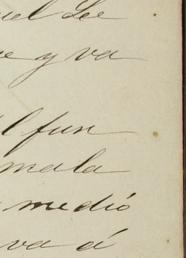 uel Lee
e y va
l fun
mala
medió
va á